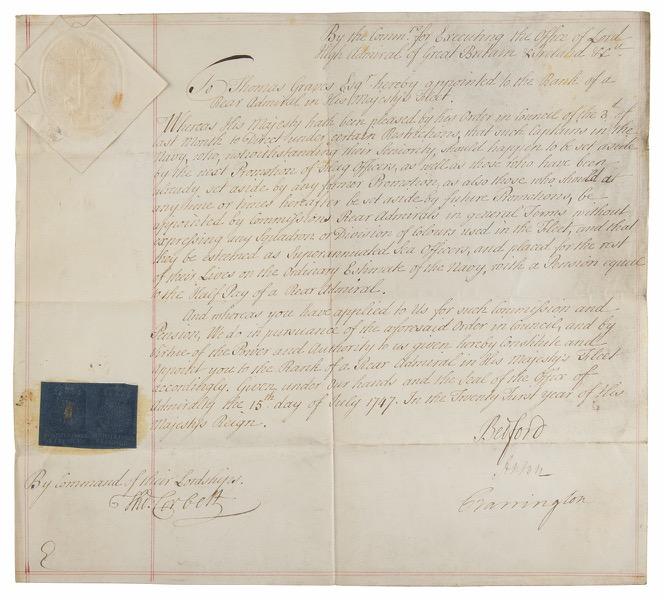 By the Comm.rs for Executing the Office of Lord
High Admiral of Great Britain & Ireland &c.a
To Thomas Graves Esq.r hereby appointed to the Rank of a
Rear Admiral in His Majesty's Fleet.
Whereas His Majesty hath been pleased by His Order in Council of the 3.d of
last Month to Direct under certain Restrictions, that such Captains in the
Navy, who, notwithstanding their Seniority, should happen to be set aside
by the next Promotion of Flag Officers, as well as those who have been
already set aside by any former Promotion, as also those who should at
any time or times hereafter be set aside by future Promotions, be
appointed by Commissions Rear Admirals in general Terms without
expressing any Squadron or Division of Colours used in the Fleet, and that
they be Esteemed as Superannuated Sea Officers, and placed for the rest
of their Lives on the Ordinary Estimate of the Navy, with a Pension equal
to the Half Pay of a Rear Admiral.
And whereas you have applied to Us for such Commission and
Pension, We do in pursuance of the aforesaid Order in Council, and by
Virtue of the Power and Authority to us given hereby Constitute and
appoint you to the Rank of a Rear Admiral in His Majesty's Fleet
accordingly. Given under Our hands and the Seal of the Office of
Admiralty the 15th day of July 1747. In the Twenty First year of His
Majesty's Reign.
Bedford
Anson
By Command of their Lordships.
Tho.s Corbett